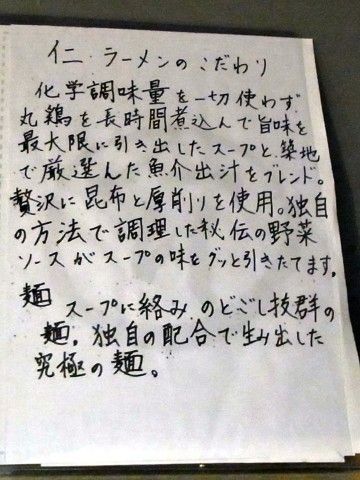 仁・ラーメンのこだわり
化学調味量を一切使わず
丸鶏を長時間煮込んで旨味を
最大限に引き出したスープと、築地
で厳選した魚介出汁をブレンド。
贅沢に昆布と厚削りを使用。独自
の方法で調理した秘伝の野菜
ソースがスープの味をグッと引きたてます。
麺
スープに絡み、のどごし抜群の
麺。独自の配合で生み出した
究極の麺。